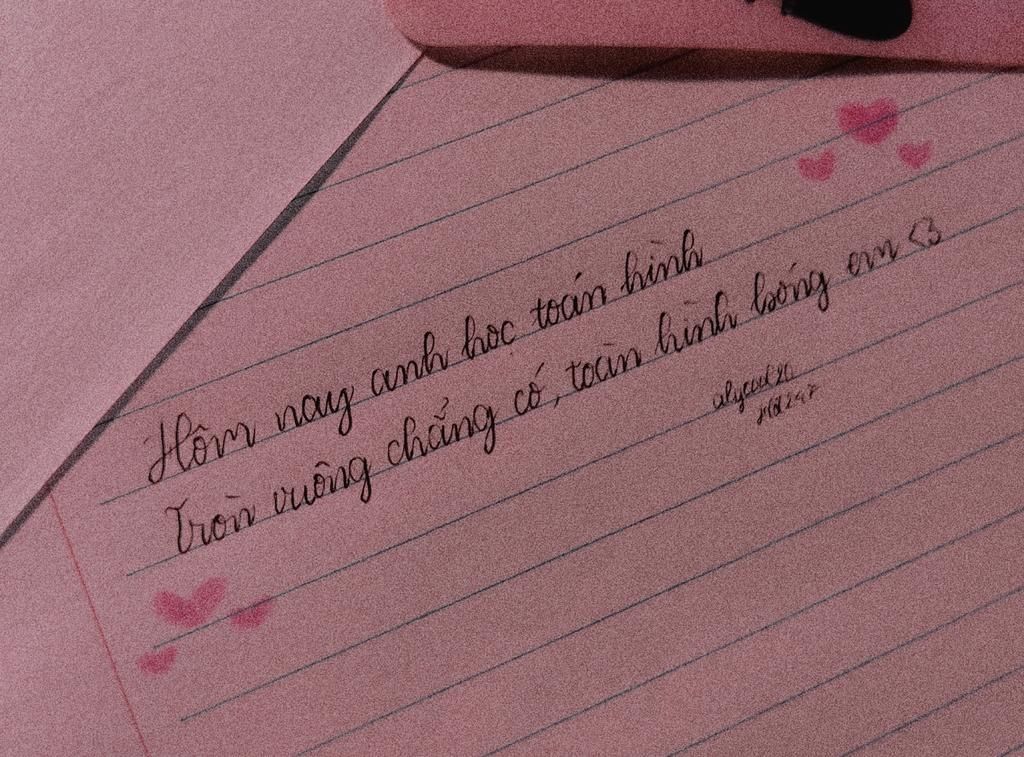 Hôm nay anh học toán hình
Tròn vuông chẳng có, toàn hình bóng em <3